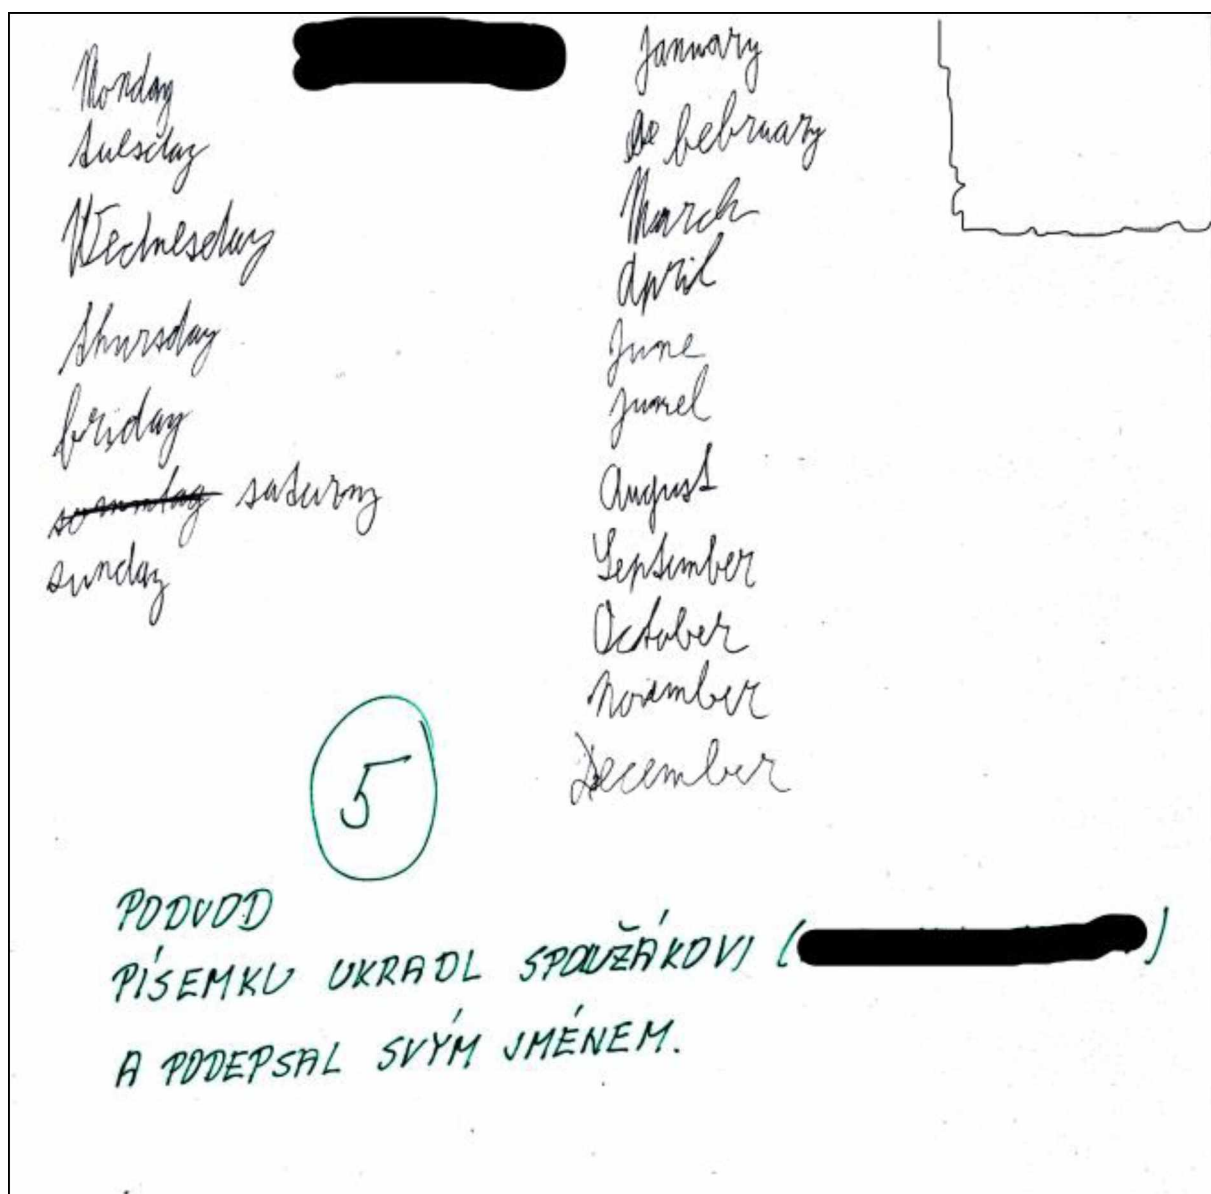 Monday
tuesday
Wednesday
thursday
friday
sonntag saturny
sunday
January
De februari
March
April
June
junel
August
Septumber
October
november
December
5
PODVOD
PÍSEMKU UKRADL SPOLUŽÁKOVI ( )
A PODEPSAL SVÝM JMÉNEM.